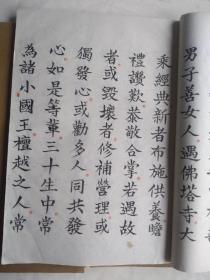 男子善女人遇佛塔寺大
乘經典新者布施供養瞻
禮讚歎恭敬合掌若遇故
者或毀壞者修補營理或
獨發心或勸多人同共發
心如是等輩三十生中常
為諸小國王檀越之人常